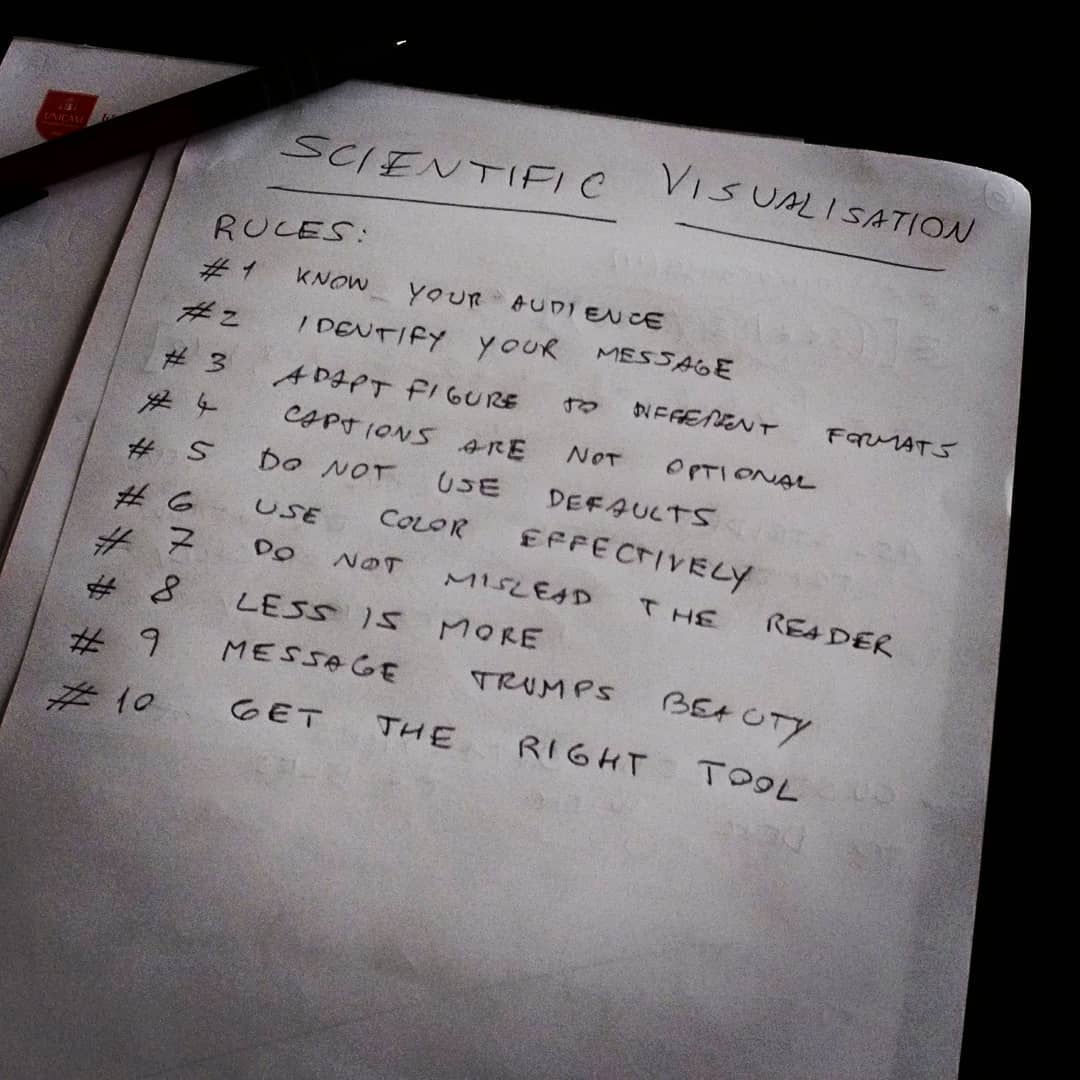 UNICAM
SCIENTIFIC VISUALISATION
RULES:
#1 KNOW YOUR AUDIENCE
#2 IDENTIFY YOUR MESSAGE
#3 ADAPT FIGURE TO DIFFERENT FORMATS
#4 CAPTIONS ARE NOT OPTIONAL
#5 DO NOT USE DEFAULTS
#6 USE COLOR EFFECTIVELY
#7 DO NOT MISLEAD THE READER
#8 LESS IS MORE
#9 MESSAGE TRUMPS BEAUTY
#10 GET THE RIGHT TOOL